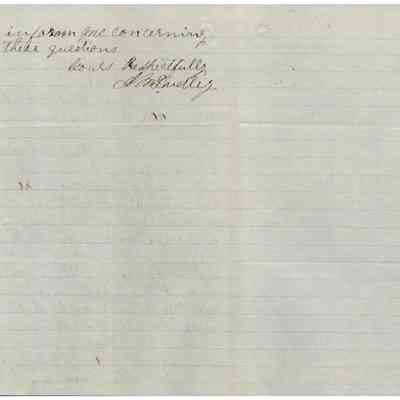 inform me concerning
these questions
Yours Respectfully